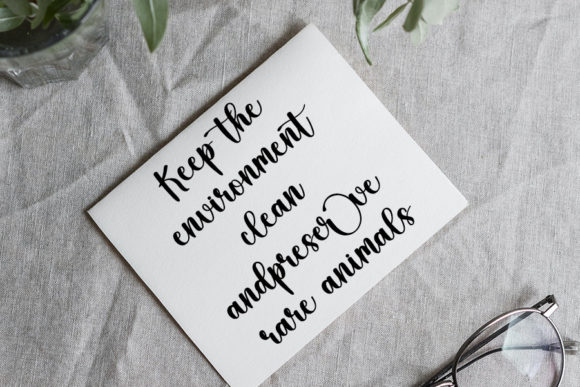 Keep the
environment
clean
andpreserve
rare animals